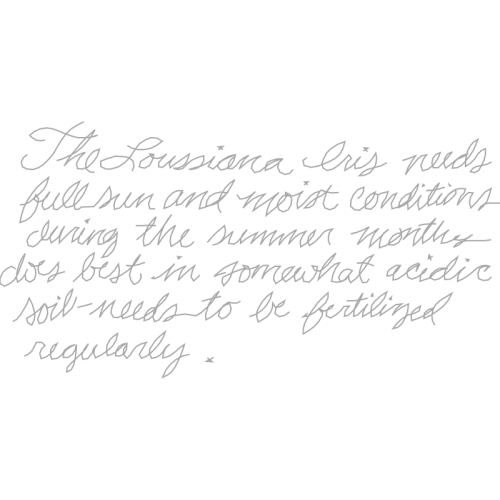 The Loussiana Iris needs
full sun and moist conditions
during the summer months
does best in somewhat acidic
soil-needs to be fertilized
regularly.